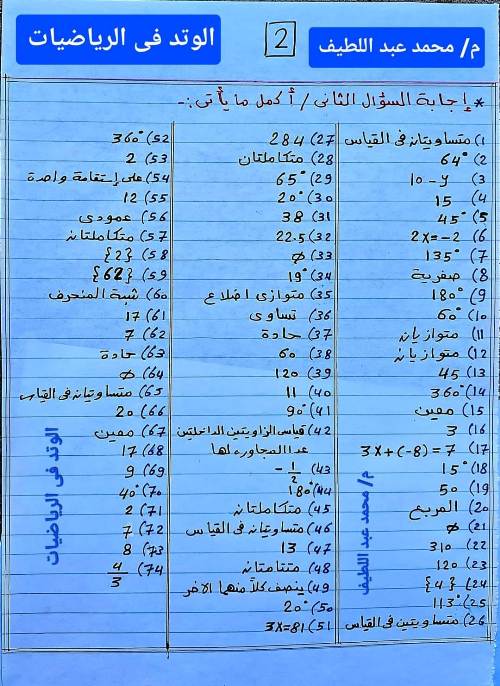 الوتد فى الرياضيات
2
م/ محمد عبد اللطيف
* إجابة السؤال الثانى / أكمل ما يأتى :-
1) متساويتان فى القياس
2) 64°
3) 10-y
4) 15
5) 45°
6) 2x=-2
7) 135°
8) صفرية
9) 180°
10) 60°
11) متوازيان
12) متوازيان
13) 45
14) 360°
15) معين
16) 3
17) 3x+(-8)=7
18) 15°
19) 50
20) المربع
21) ø
22) 310
23) 120
24) {4}
25) 113°
26) متساويتين فى القياس
27) 284
28) متكاملتان
29) 65°
30) 20°
31) 38
32) 22.5
33) ø
34) 19°
35) متوازى اضلاع
36) تساوى
37) حادة
38) 60
39) 120
40) 11
41) 90°
42) قياس الزاويتين الداخلتين
عدا المجاوره لها
43) -1/2
44) 180°
45) متكاملتان
46) متساويتانه فى القياس
47) 13
48) متتامتان
49) ينصف كلاً منهما الاخر
50) 20°
51) 3x=81
52) 360°
53) 2
54) على إستقامة واحدة
55) 12
56) عمودى
57) متكاملتان
58) {2}
59) {62}
60) شبة المنحرف
61) 17
62) 7
63) حادة
64) ø
65) متساويتان فى القياس
66) 20
67) معين
68) 17
69) 9
70) 40°
71) 2
72) 7
73) 8
74) 4/3
الوتد فى الرياضيات
م/ محمد عبد اللطيف